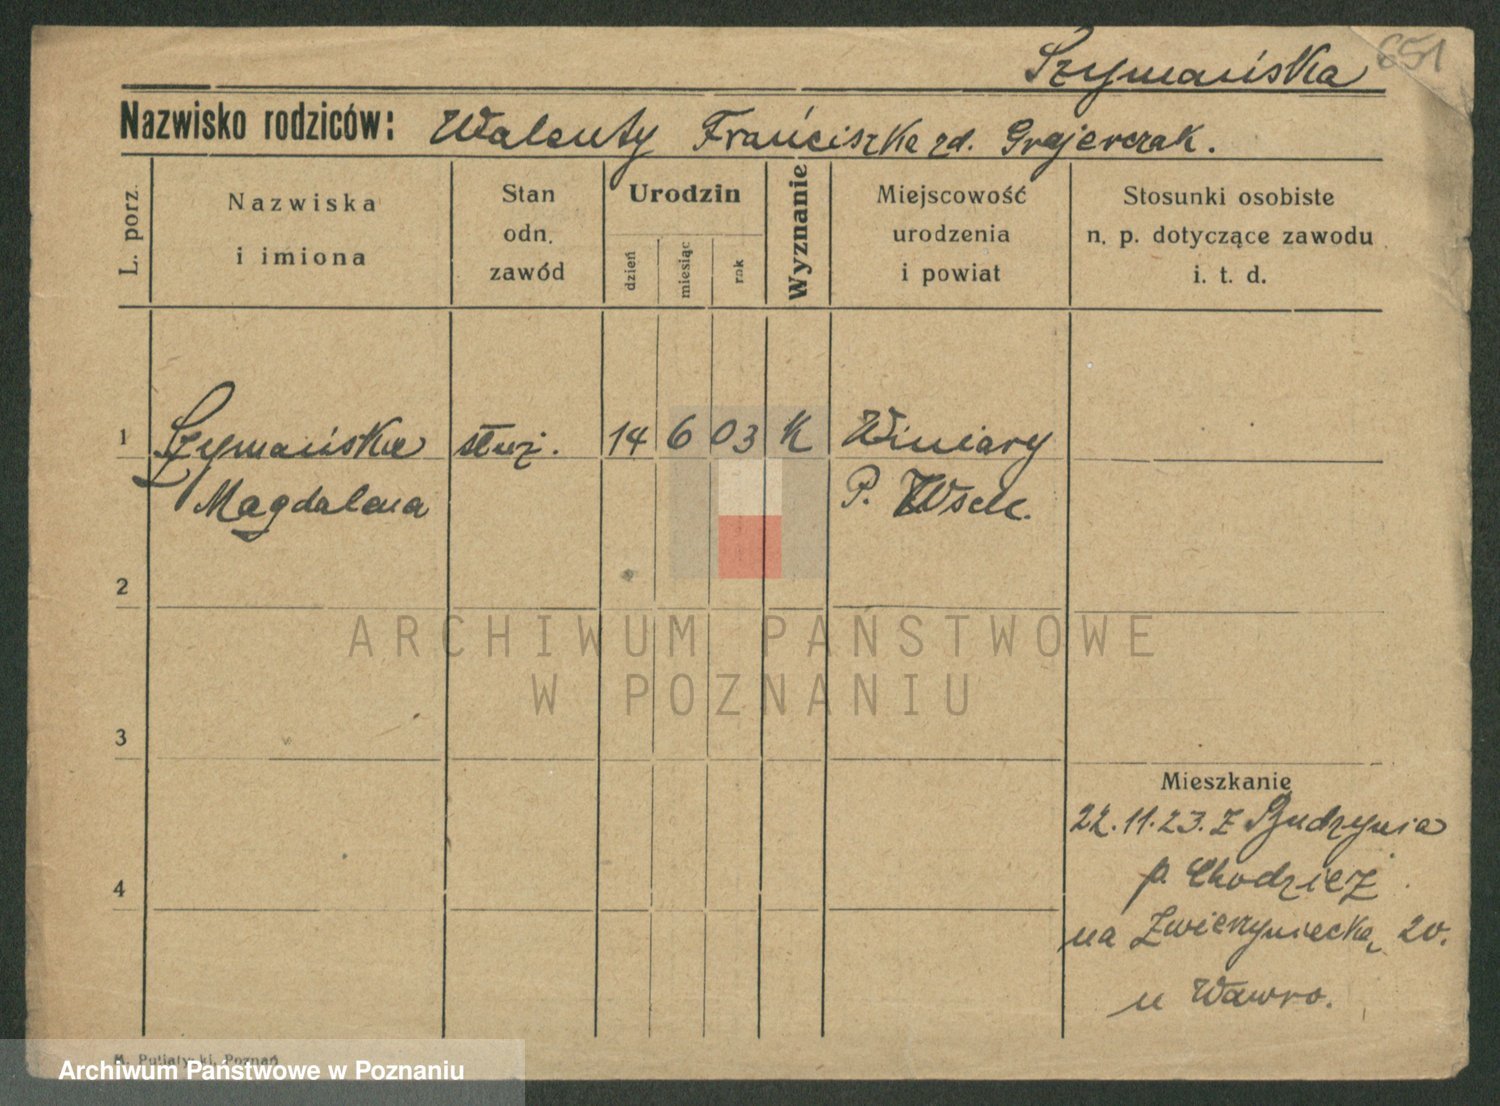 Szymańska 651
Nazwisko rodziców: Walenty Franciszka zd. Grajerczak.
L. porz.
Nazwiska
i imiona
Stan
odn.
zawód
Urodzin
dzień
miesiąc
rok
Wyznanie
Miejscowość
urodzenia
i powiat
Stosunki osobiste
n. p. dotyczące zawodu
i. t. d.
1 Szymańska służ. 14 6 03 K Winiary
Magdalena P.
2
ARCHIWUM PAŃSTWOWE
W POZNANIU
3
Mieszkanie
22.11.23. z Budzynia
p. Chodzież
4
na Zwierzyniecką 20.
u Wawro.
M. Putiatycki, Poznań
Archiwum Państwowe w Poznaniu